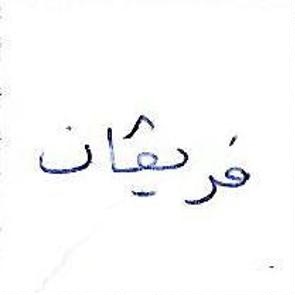 فريقان